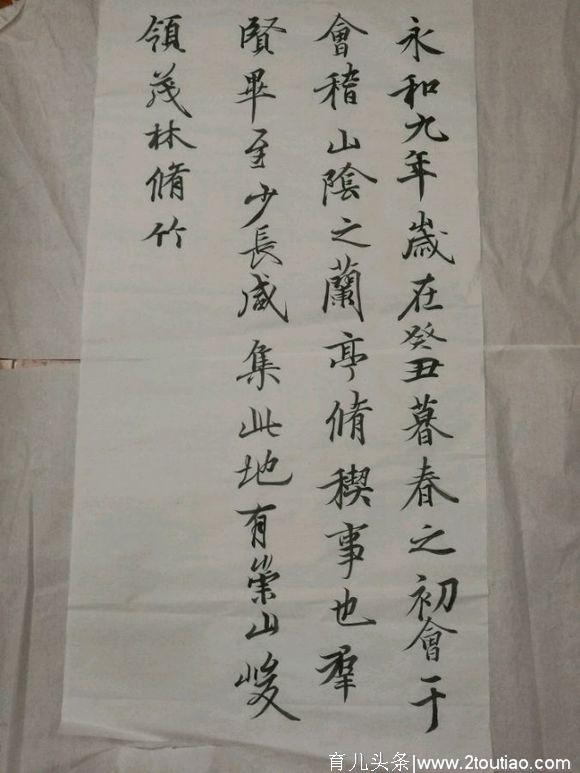 永和九年歲在癸丑暮春之初會于
會稽山陰之蘭亭脩稧事也羣
賢畢至少長咸集此地有崇山峻
領茂林脩竹
育儿头条|www.2toutiao.com